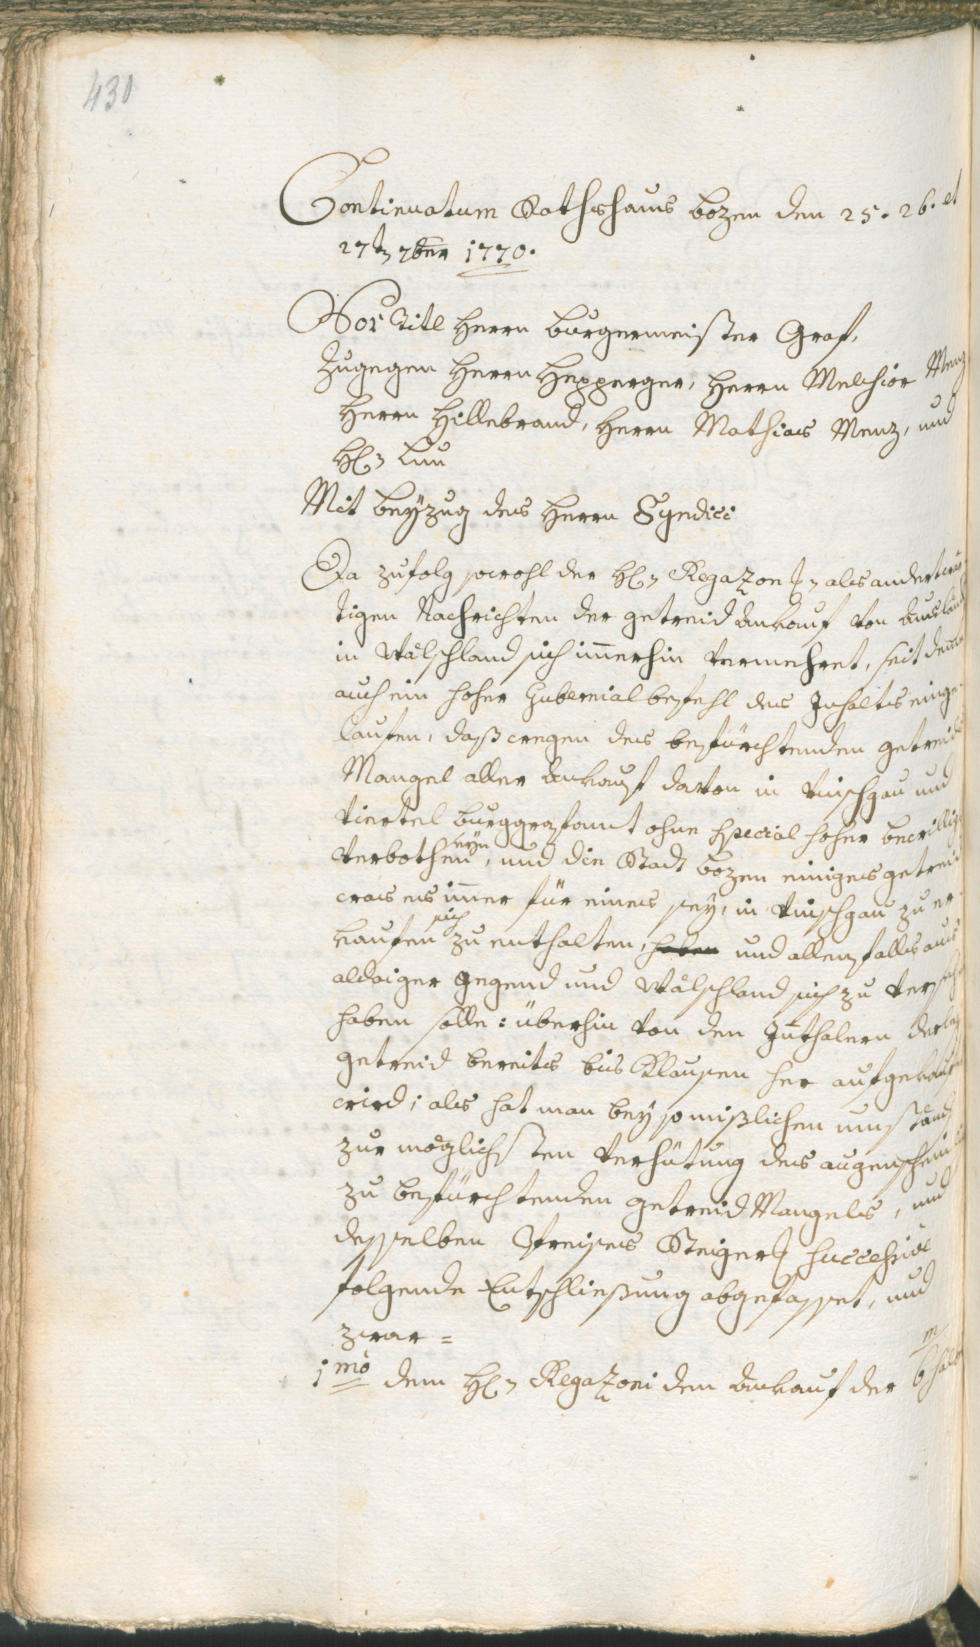 430
Continuatum Rathshaus bozen den 25. 26. et
27tn 7ber 1770.
Vor Titl Herrn burgermeister Graf,
Zugegen Herrn Hepperger, Herrn Melchior Menz
Herrn Hillebrand, Herrn Mathias Menz, und
H: Lun
Mit beÿzug des Herrn Syndici
Da zufolg sowohl der H: Regazonis: als anderweitigen
tigen Nachrichten der getreid Ankauf von
in Wälschland sich im̄erhin vermehret, seit deme
auch ein hoher Gubernial befehl des Inhalts einge
laufen, daß wegen des beförchtenden getreid
Mangel aller Ankauf davon in Vinschgau und
Viertel burggrafamt ohne special hoher bewillig
verbothen seyn, und die Stadt bozen einiges getreid
was es im̄er für eines seÿ, in Vinschgau zu er
kaufen sich zu enthalten, haben und allenfalls aus
aldaiger gegend und Wälschland sich zu versehen
haben solle: überhin von den Inthalern das
getreid bereits bis Klausen her aufgekauft
wird; als hat man beÿ so mißlichen umständ
zur möglichsten Verhütung des augenschein
zu beförchtenden getreid Mangels, und
desselben Preises Steigerg successive
folgende Entschließung abgefasset, und
zwar =
1mo dem H: Regazoni den Ankauf der 6 m